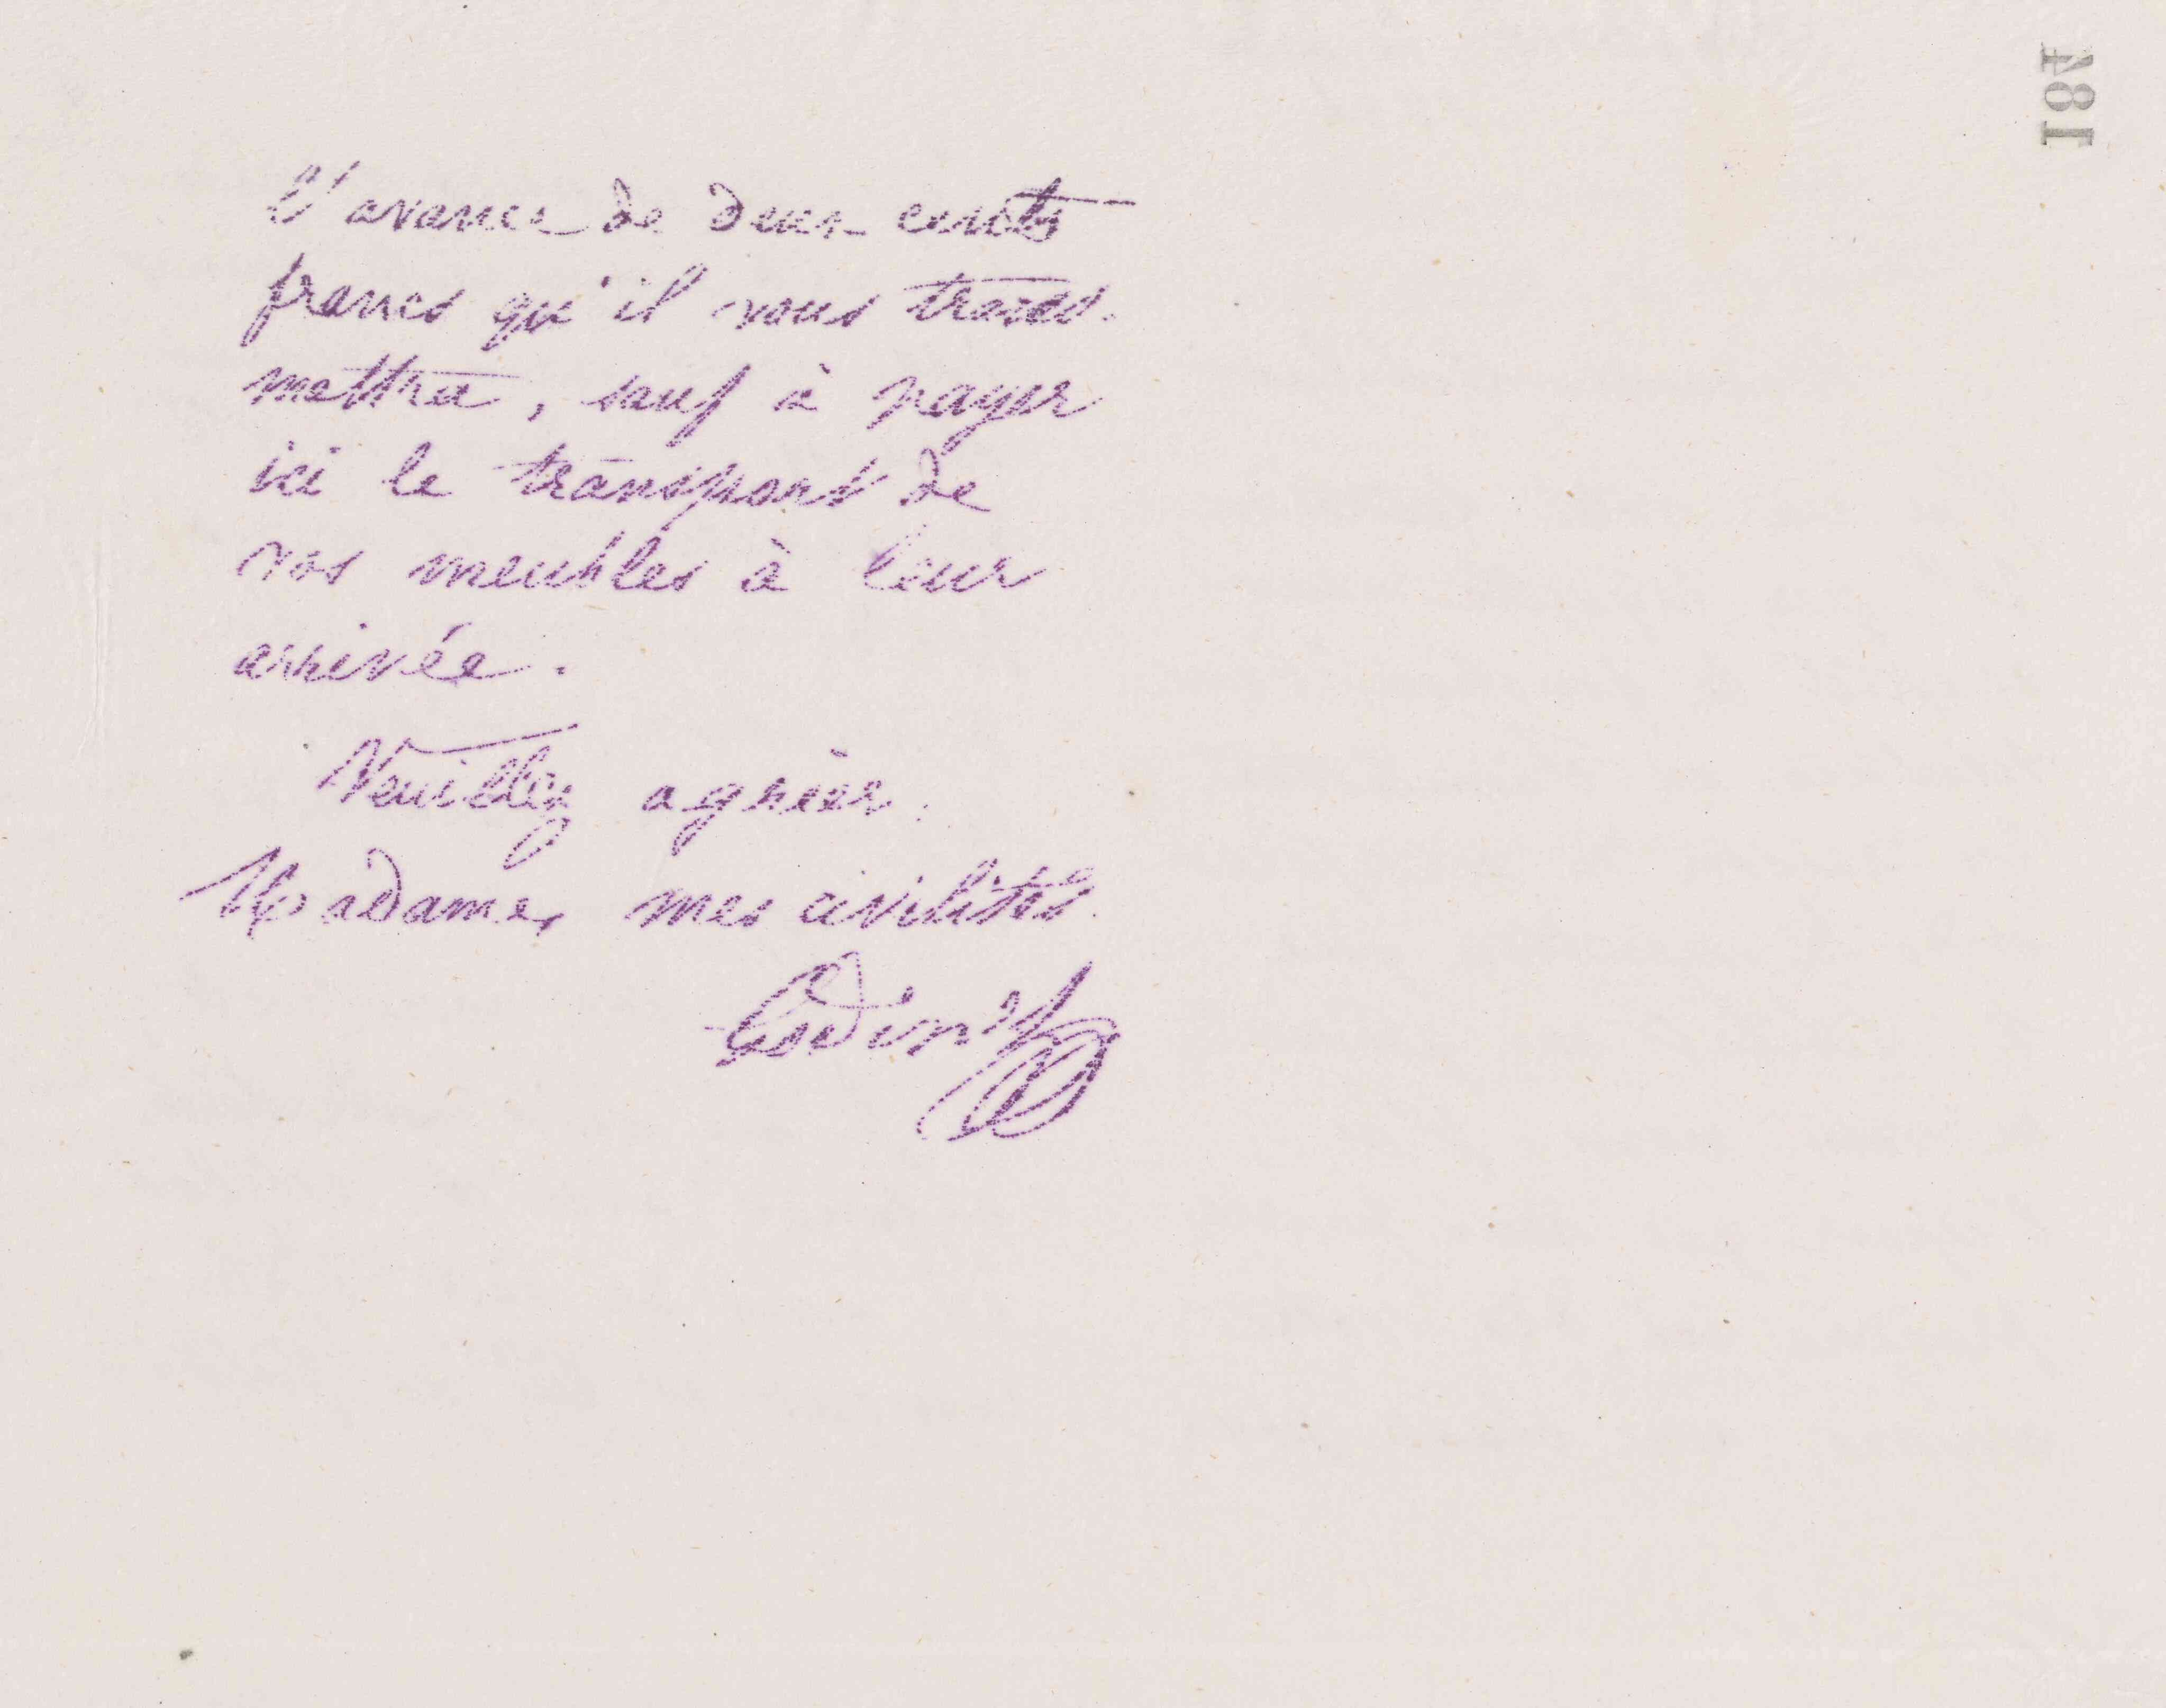 481
l'avance de deux cents
francs qu'il vous trans-
mettra, sauf à payer
ici le transport de
vos meubles à leur
arrivée.
Veuillez agréer,
Madame, mes civilités.
Godin